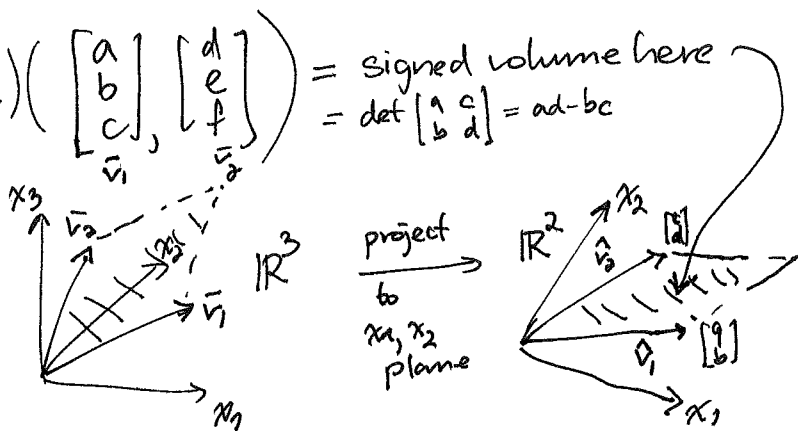 )( [a b c], [d e f] ) = signed volume here
v̄₁ v̄₂ = det [a c b d] = ad-bc
x₃ v̄₂ x₂ v̄₁ x₁
ℝ³
project
to
x₁, x₂
plane
ℝ² x₂
v̂₂ [c d]
v̂₁ [a b]
x₁